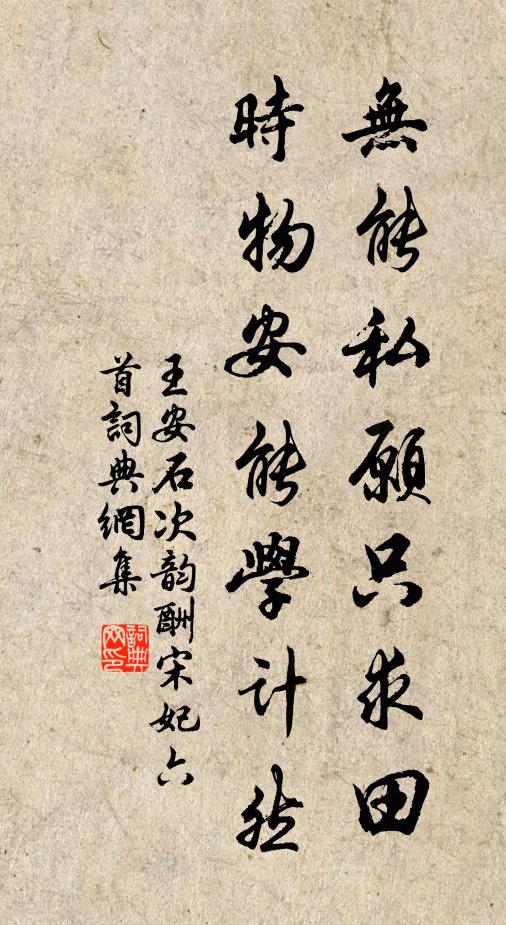 無能私願只求田
時物安能學計然
王安石次韵酬宋妃六
首詞典網集
詞典
网印